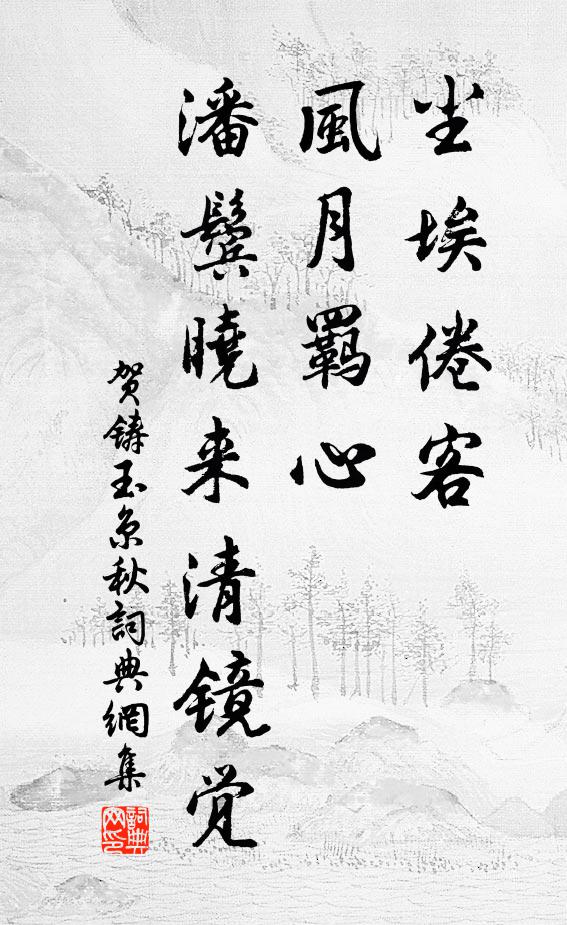 尘埃倦客
風月羈心
潘鬓曉来清镜觉
贺鑄玉京秋詞典網集
詞典网印